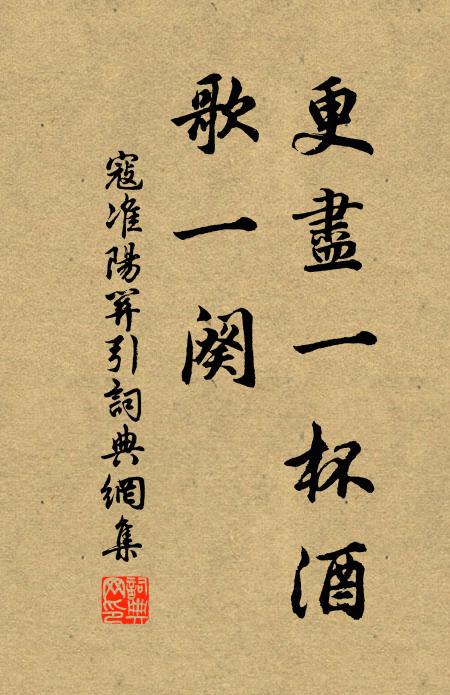 更盡一杯酒
歌一闋
寇准陽關引詞典網集
詞典网印